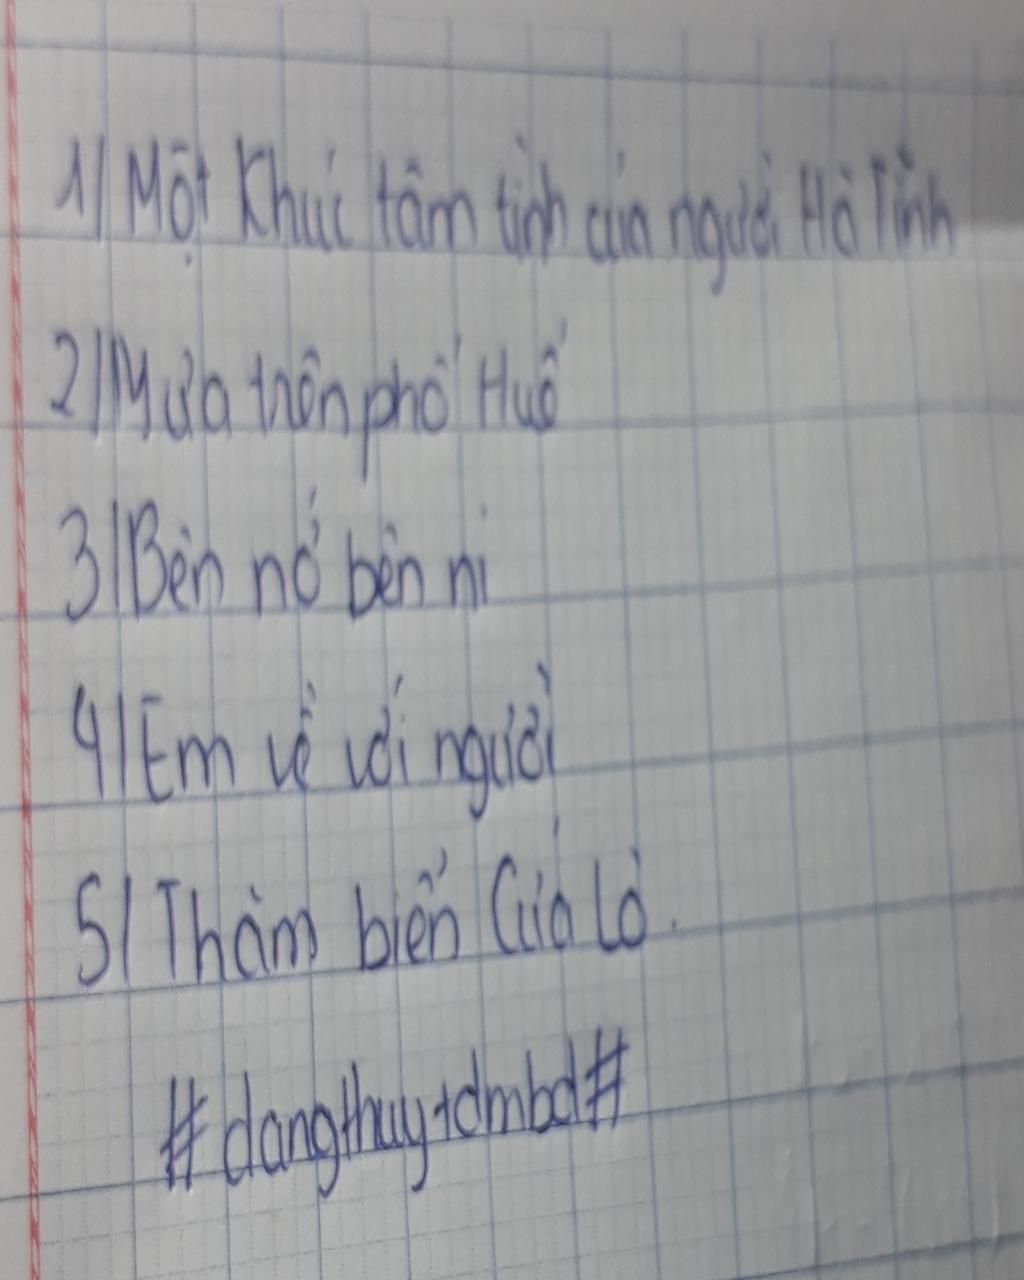 1) Một Khúc tâm tình của người Hà Tĩnh
2) Mưa trên phố Huế
3) Bên nớ bên ni
4) Em về với người
5) Thăm biển Cửa Lò.
#dangthuytdmbd#